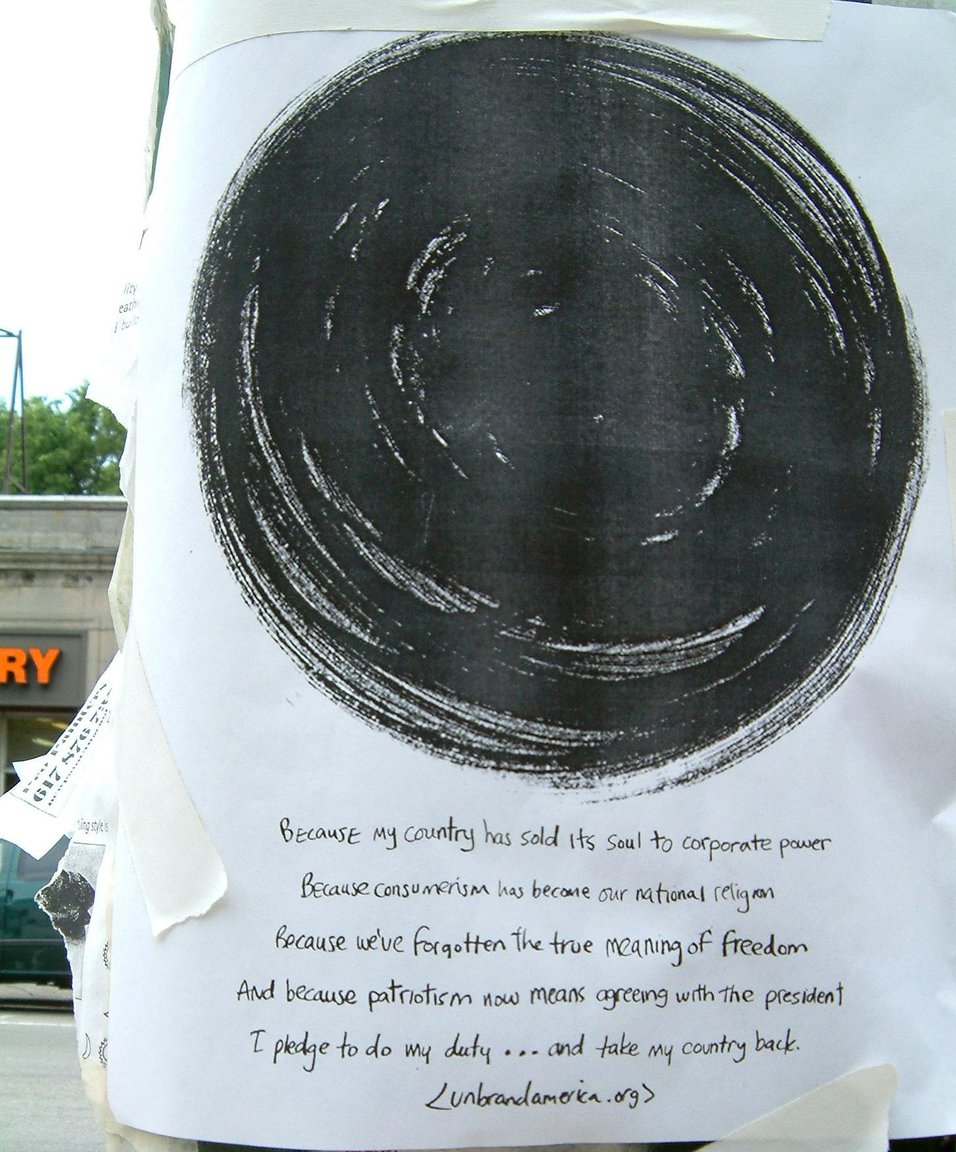 Because my country has sold its soul to corporate power
Because consumerism has become our national religion
Because we've forgotten the true meaning of freedom
And because patriotism now means agreeing with the president
I pledge to do my duty ... and take my country back.
<unbrandamerica.org>
RY
lity